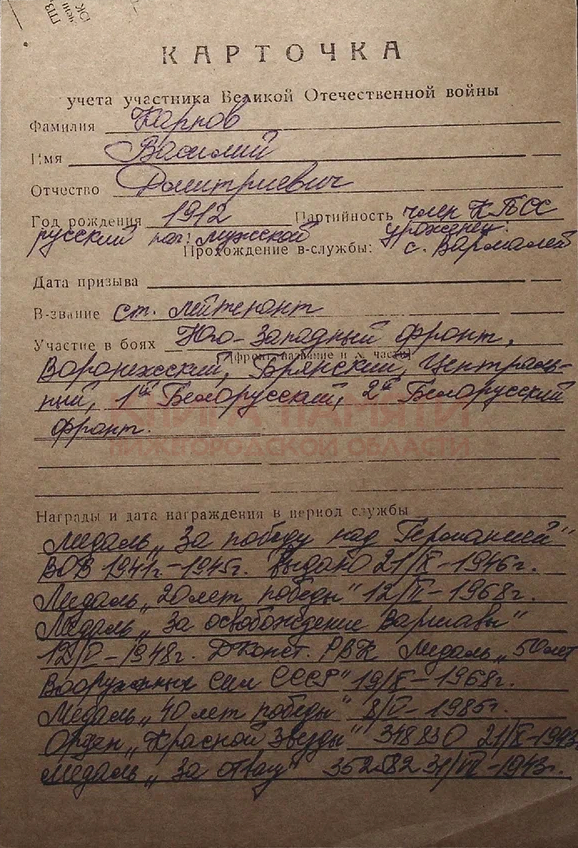 КАРТОЧКА
учета участника Великой Отечественной войны
Фамилия Карпов
Имя Василий
Отчество Дмитриевич
Год рождения 1912 Партийность член КПСС
русский пол: мужской уроженец:
Прохождение в-службы: с. Вармалей
Дата призыва
В-звание ст. лейтенант
Участие в боях Юго-Западный фронт,
(фронт, название и № части)
Воронежский, Брянский, Централь-
ный, 1й Белорусский, 2й Белорусский
фронт.
КНИГА ПАМЯТИ
НИЖЕГОРОДСКОЙ ОБЛАСТИ
Награды и дата награждения в период службы
Медаль „За победу над Германией"
ВОВ 1941г.-1945г. выдано 21/IX-1946г.
Медаль „20 лет победы" 12/II-1968г.
Медаль „За освобождение Варшавы"
12/V-1948г. ДКонст. РВК Медаль „50 лет
Вооруженных Сил СССР" 19/X-1968г.
Медаль „40 лет победы" 8/V-1985г.
Орден „Красной Звезды" 348830 21/X-1943г
Медаль „За отвагу" 352582 31/VII-1943г.